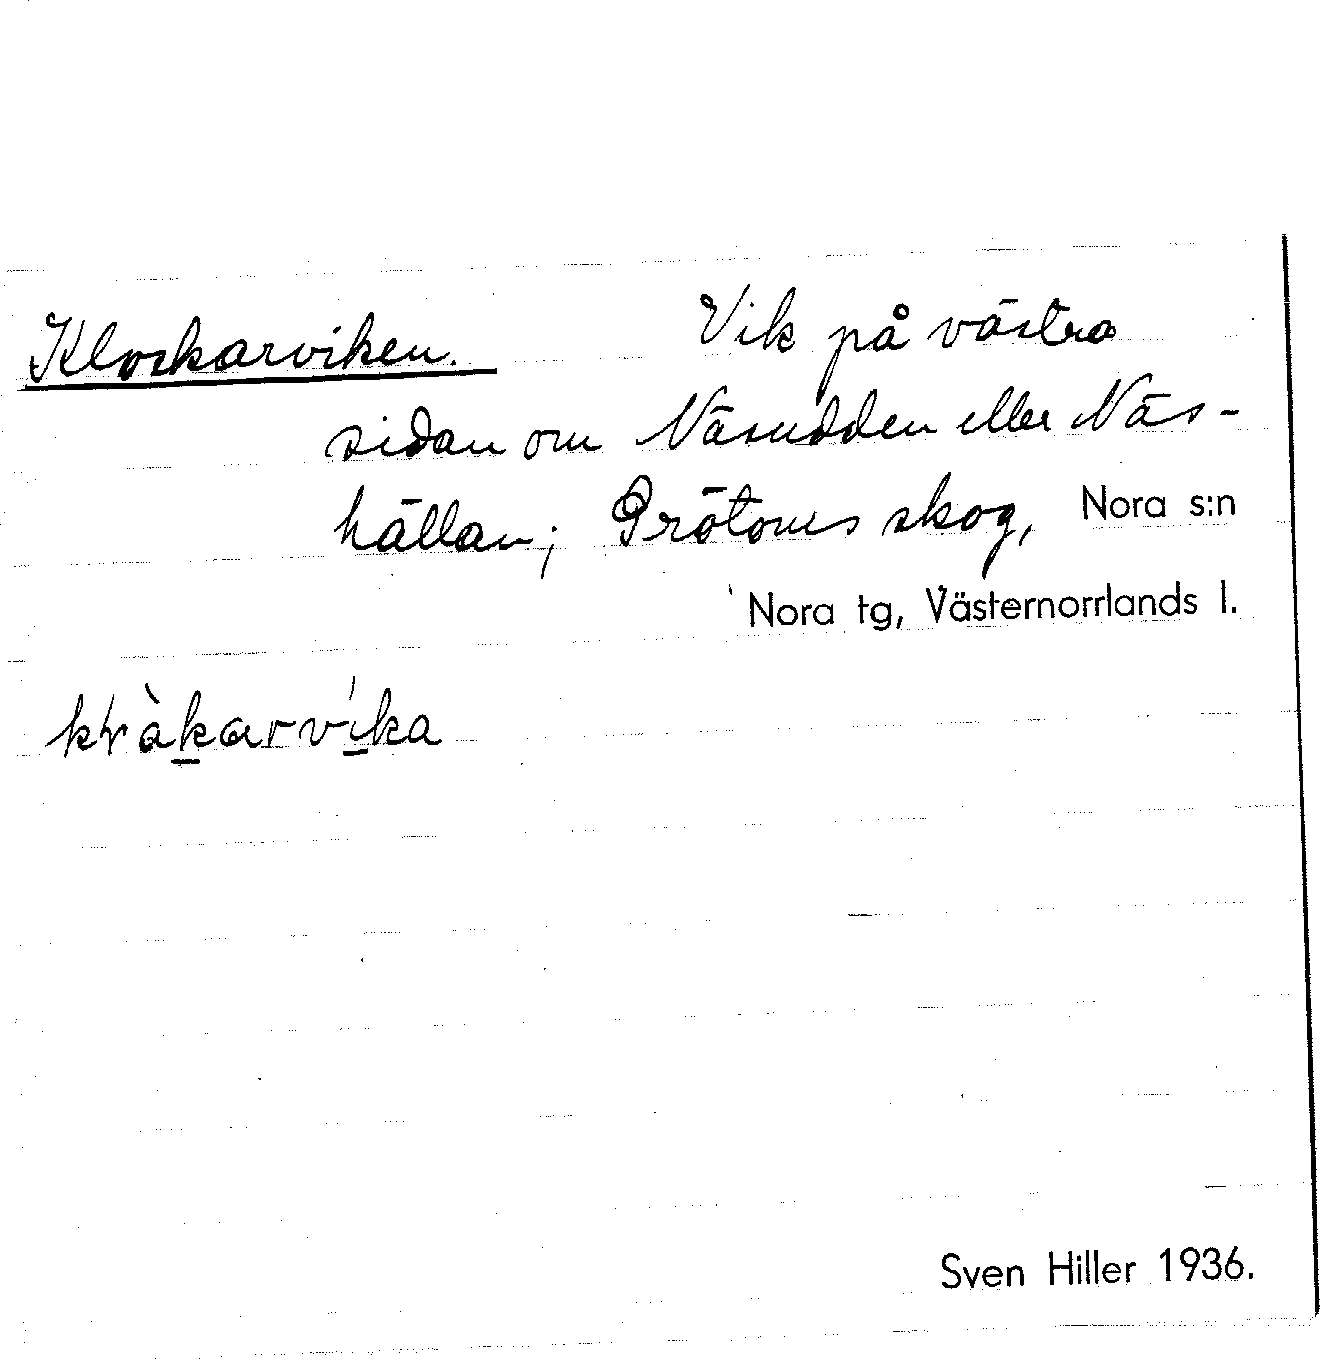 Klockarviken. Vik på västra
sidan om Näsudden eller Näs-
hällan; Prötoms skog, Nora s:n
Nora tg, Västernorrlands l.
Sven Hiller 1936.